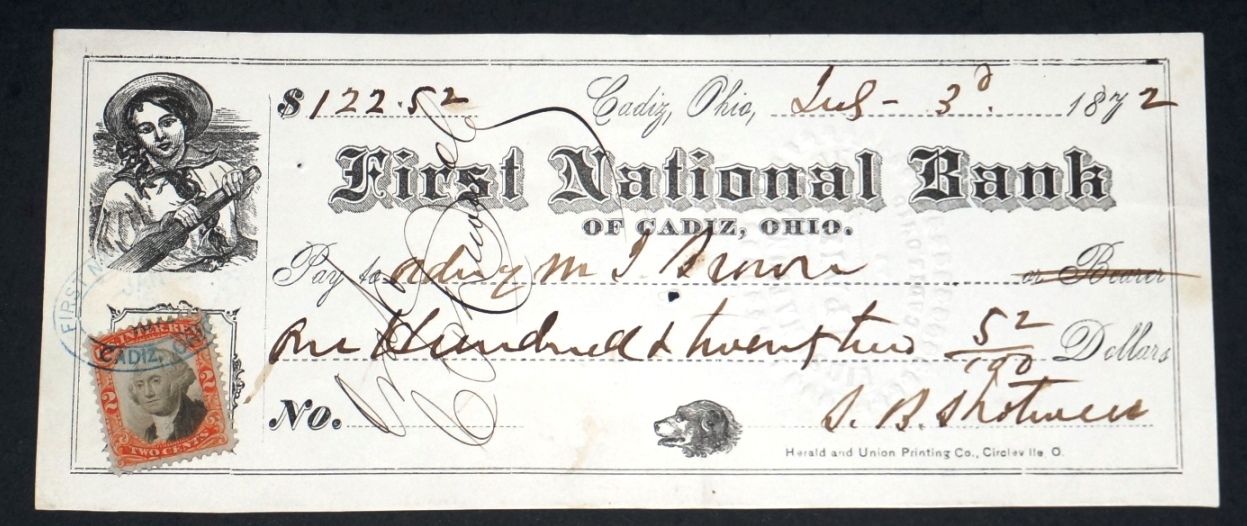 $122.52 Cadiz, Ohio, July - 3d. 1872
First National Bank
OF CADIZ, OHIO.
Pay to M J Brown or Bearer
One Hundred & twenty two 52/100 Dollars
No. S. B. Shotwell
Herald and Union Printing Co., Circleville, O.
FIRST
JAN
CADIZ, O
INTER. REV.
2 2
TWO CENTS